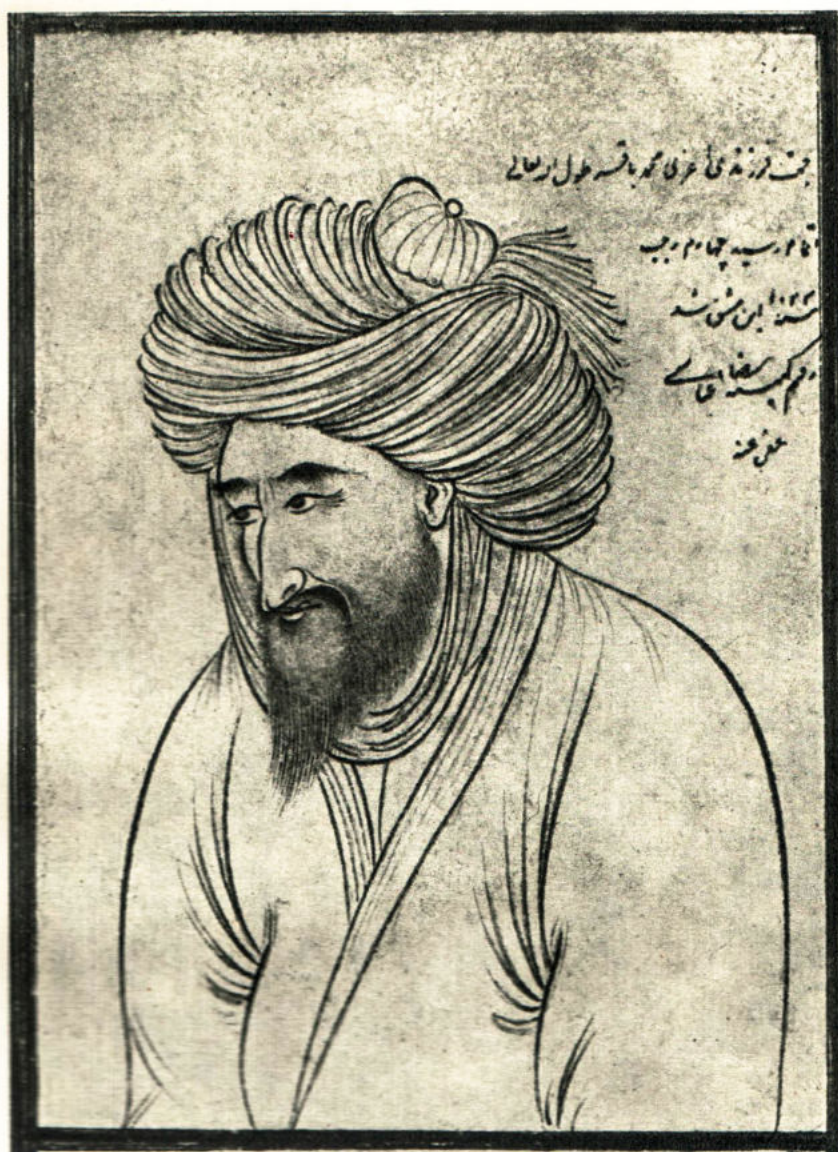 جهت فرزندی اعزی محمد باقر طول الله تعالی
اتمام رسید چهارم رجب
این مشق شد
رقم کمینه رضای عباسی
عفی عنه